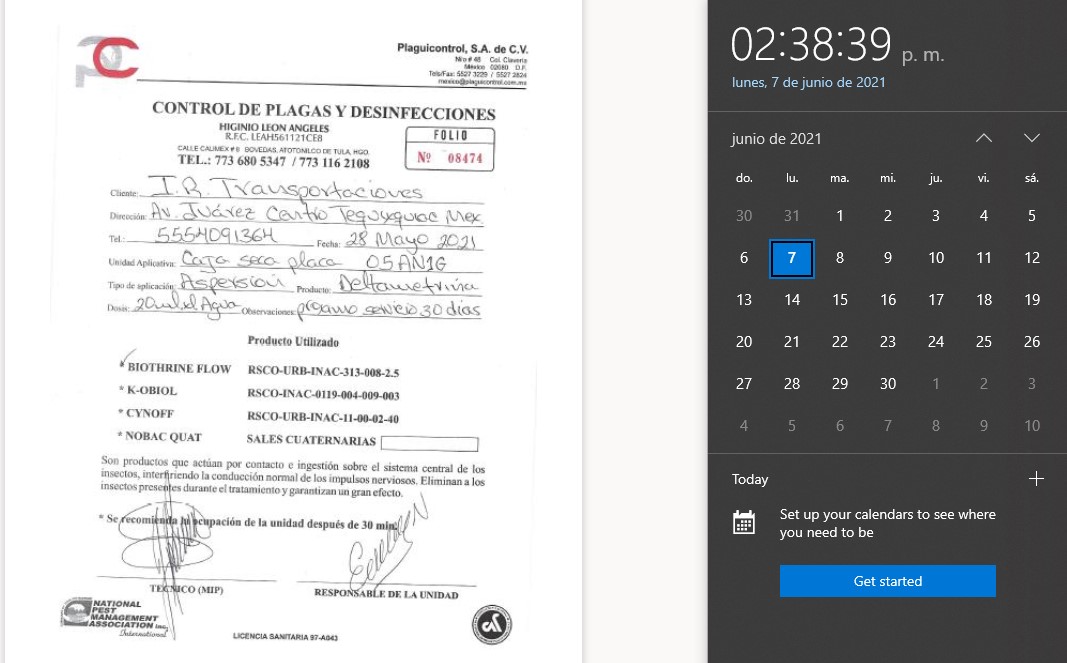 PC
Plaguicontrol, S.A. de C.V.
Nilo # 48 Col. Claveria
México 02080 D.F.
Tels/Fax: 5527 3229 / 5527 2824
mexico@plaguicontrol.com.mx
CONTROL DE PLAGAS Y DESINFECCIONES
HIGINIO LEON ANGELES
R.F.C. LEAH561121CE8
CALLE CALIMEX # 8 BOVEDAS, ATOTONILCO DE TULA, HGO.
TEL.: 773 680 5347 / 773 116 2108
FOLIO
Nº 08474
Cliente: I.R. Transportaciones
Dirección: Av. Juárez Centro Tequixquiac Mex.
Tel.: 5554091364 Fecha: 28 Mayo 2021
Unidad Aplicativa: Caja seca placa 05AN1G
Tipo de aplicación: Aspersión Producto: Deltametrina
Dosis: 20ml xl Agua Observaciones: próximo servicio 30 días
Producto Utilizado
* BIOTHRINE FLOW RSCO-URB-INAC-313-008-2.5
* K-OBIOL RSCO-INAC-0119-004-009-003
* CYNOFF RSCO-URB-INAC-11-00-02-40
* NOBAC QUAT SALES CUATERNARIAS
Son productos que actúan por contacto e ingestión sobre el sistema central de los
insectos, interfiriendo la conducción normal de los impulsos nerviosos. Eliminan a los
insectos presentes durante el tratamiento y garantizan un gran efecto.
* Se recomienda la ocupación de la unidad después de 30 min.
TECNICO (MIP) RESPONSABLE DE LA UNIDAD
NATIONAL
PEST
MANAGEMENT
ASSOCIATION Inc.
International
LICENCIA SANITARIA 97-A043
02:38:39 p. m.
lunes, 7 de junio de 2021
junio de 2021
do. lu. ma. mi. ju. vi. sá.
30 31 1 2 3 4 5
6 7 8 9 10 11 12
13 14 15 16 17 18 19
20 21 22 23 24 25 26
27 28 29 30 1 2 3
4 5 6 7 8 9 10
Today
Set up your calendars to see where
you need to be
Get started